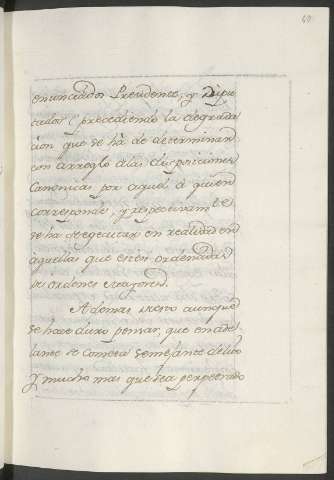 enunciados Presidente, y Dipu
tados (precediendo la degrada
cion que se hà de determinar
con arreglo alas disposiciones
Canonicas por aquel à quien
corresponda, y respectivam.te
se ha de egecutar en realidad en
aquellos que estèn ordenados
de ordenes mayores.
Ademas de esto aunque
se hace duro pensar, que en ade
lante se cometa semejante delito
y mucho mas que sea perpetrado